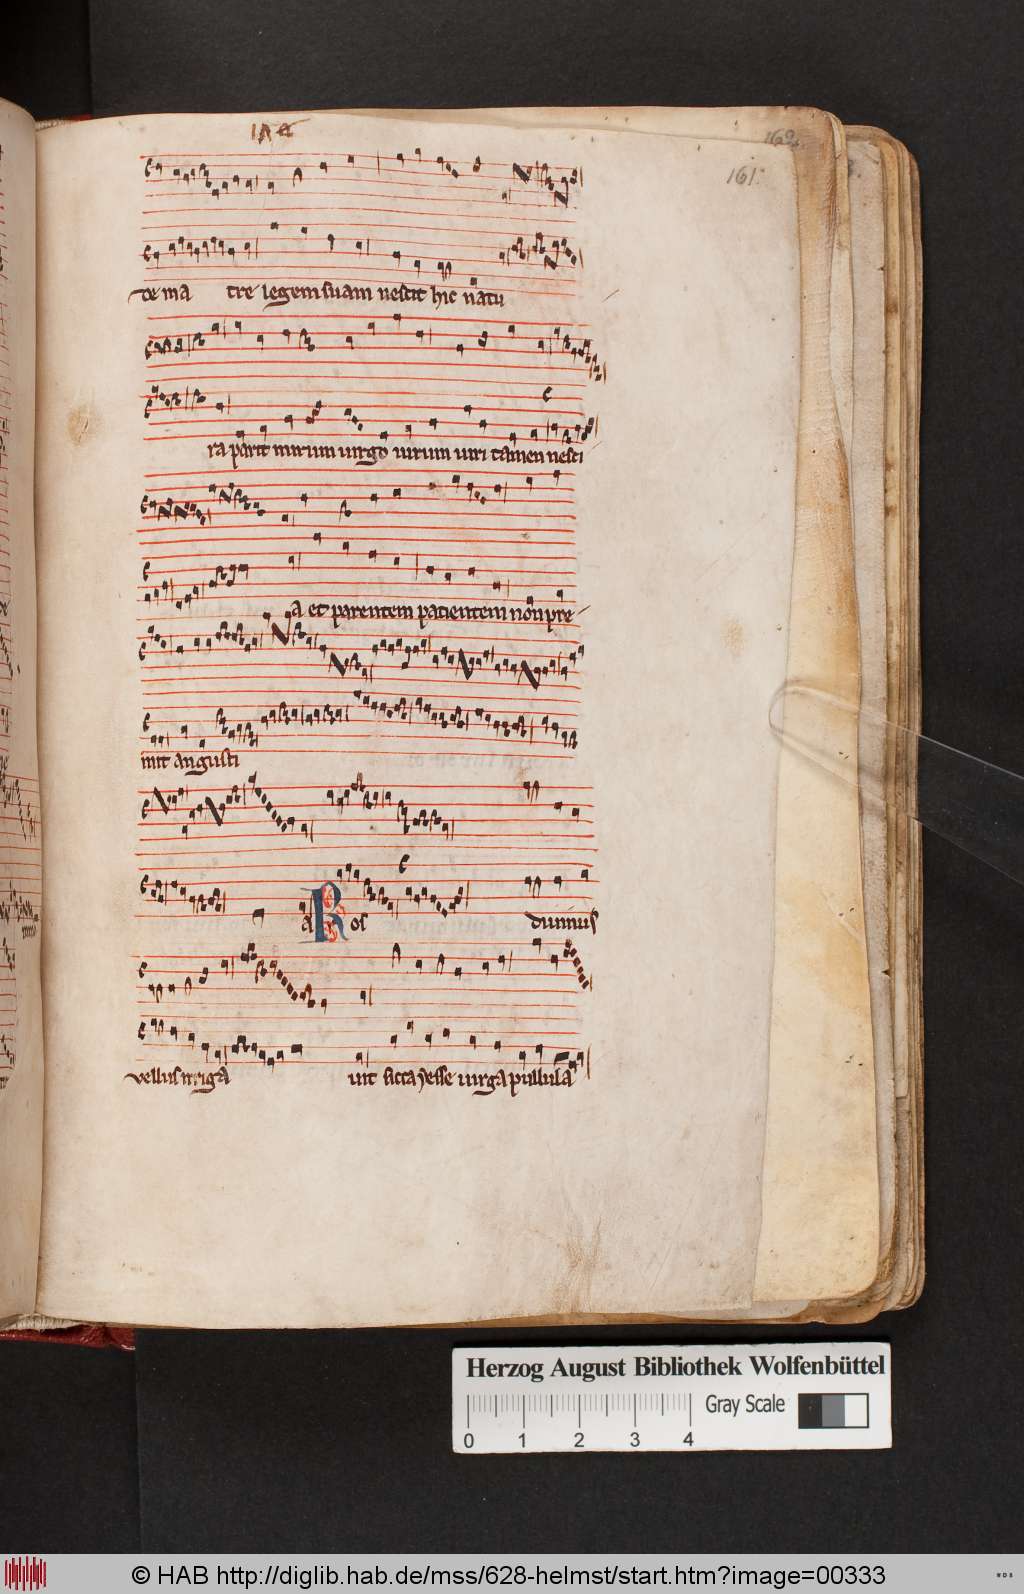 161.
te ma tre legem suam nescit hic natu
ra parit mirum uirgo uirum uiri tamen nesci
a et parentem patientem non pre
mit angusti
a Ros diuinus
vellus irriga uit sicca yesse uirga pullula
Herzog August Bibliothek Wolfenbüttel
Gray Scale
0 1 2 3 4
© HAB http://diglib.hab.de/mss/628-helmst/start.htm?image=00333